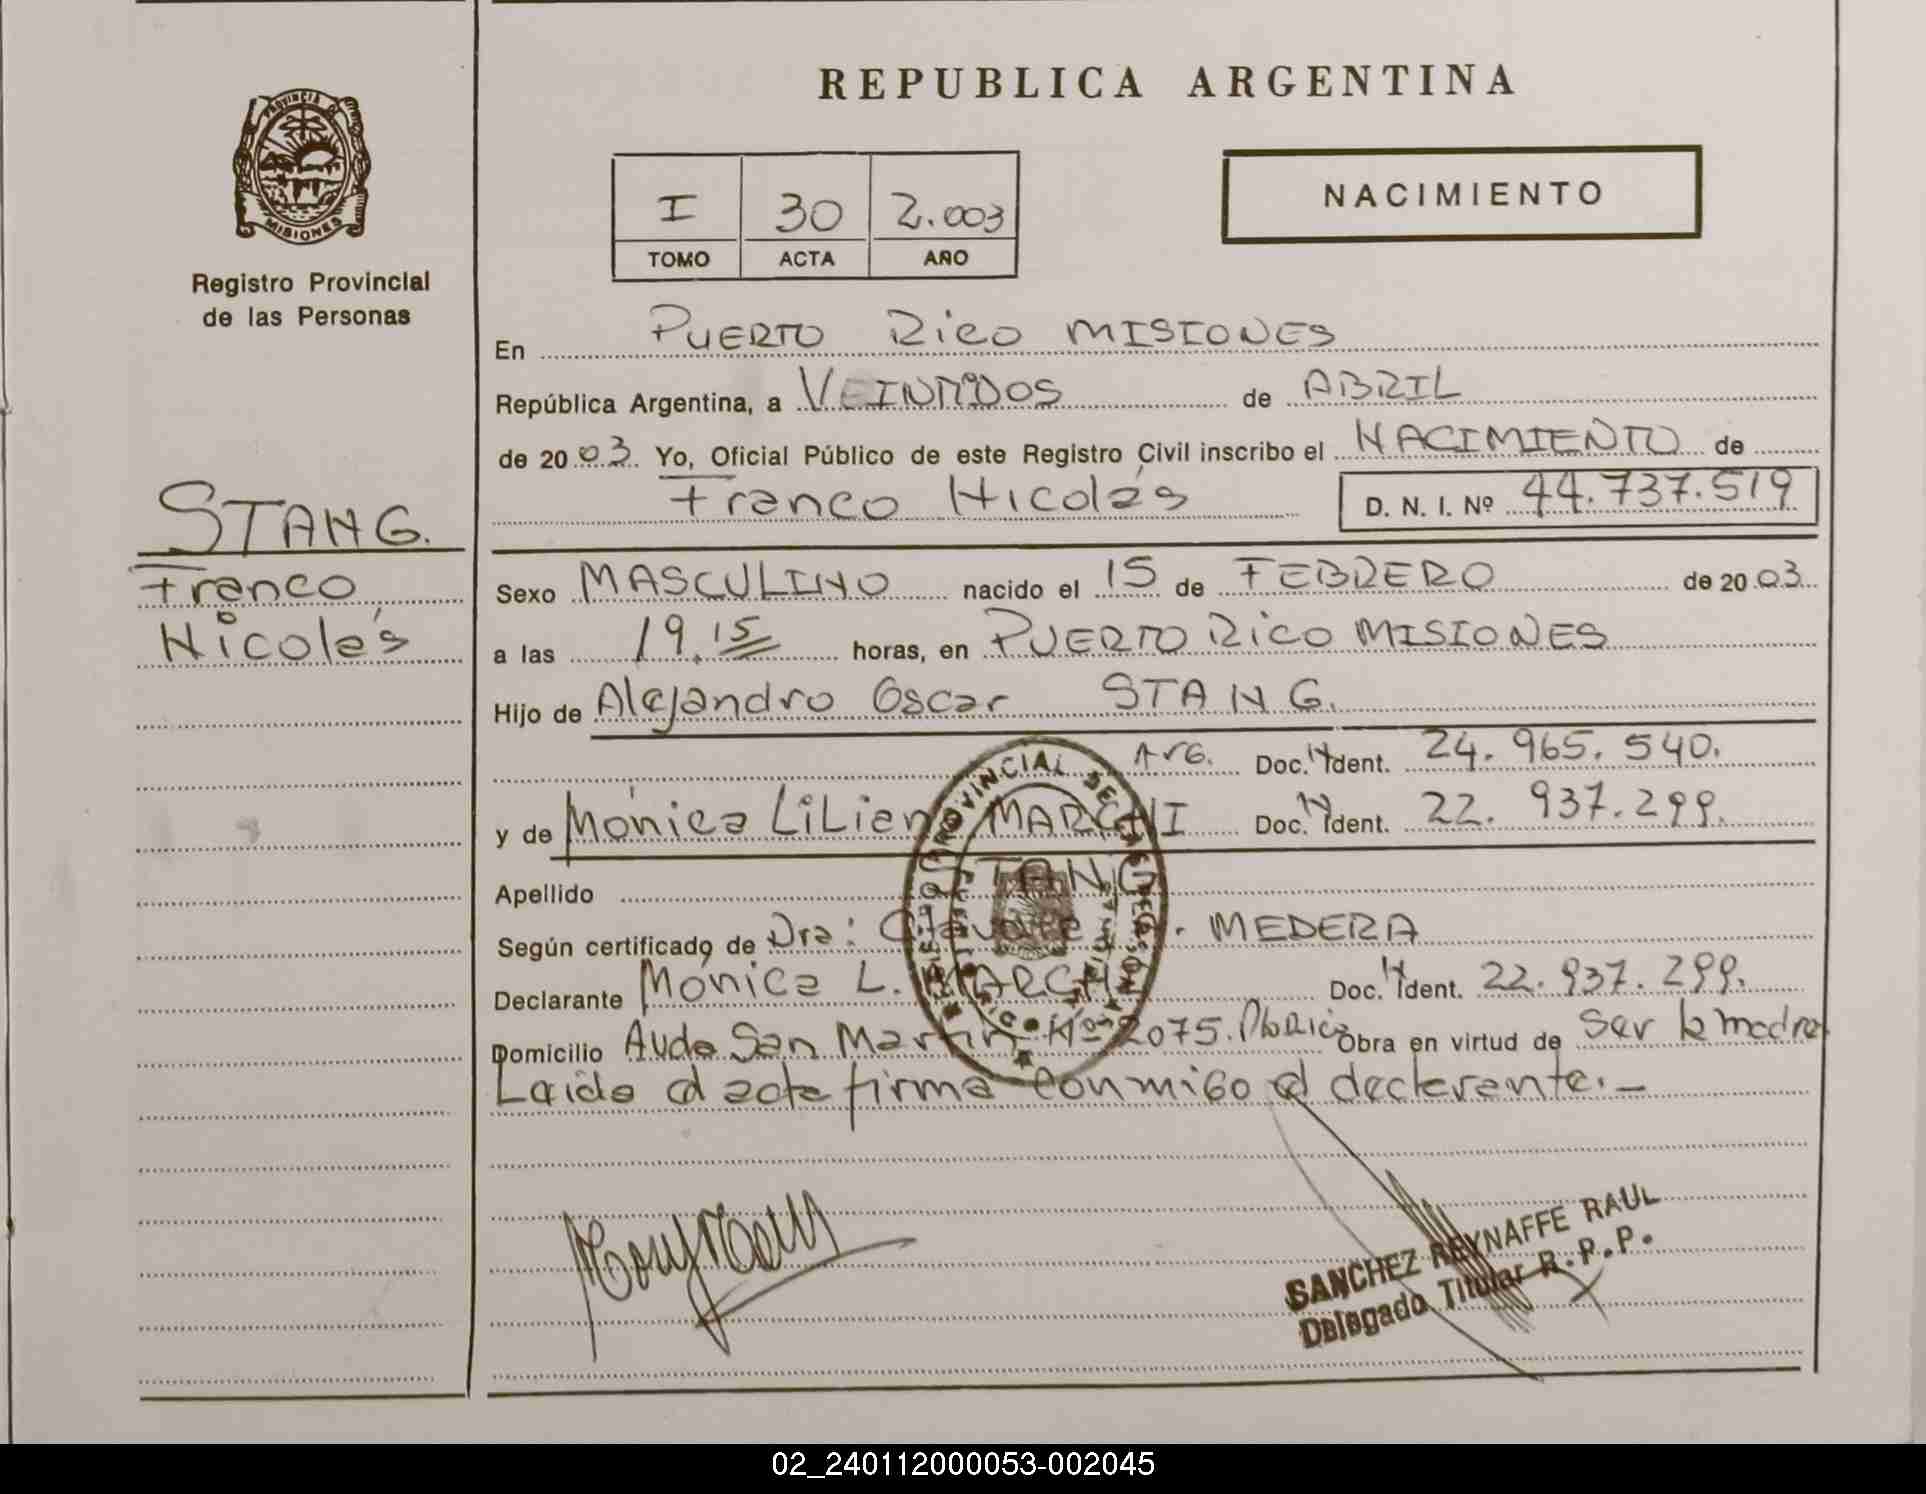 REPUBLICA ARGENTINA
PROVINCIA DE
MISIONES
Registro Provincial
de las Personas
I 30 2.003
TOMO ACTA AÑO
NACIMIENTO
En PUERTO RICO MISIONES
República Argentina, a VEINTIDOS de ABRIL
de 2003. Yo, Oficial Público de este Registro Civil inscribo el NACIMIENTO de
Franco Nicolás D. N. I. Nº 44.737.519
STANG.
Franco
Nicolás
Sexo MASCULINO nacido el 15 de FEBRERO de 2003
a las 19.15 horas, en PUERTO RICO MISIONES
Hijo de Alejandro Oscar STANG.
Arg. Doc. N Ident. 24.965.540.
y de Mónica Lilian MARCHI Doc. N Ident. 22.937.299.
Apellido STANG
Según certificado de Dra: MEDERA
Declarante Mónica L. MARCHI Doc. N Ident. 22.937.299.
Domicilio Avda San Martín Nº 2075. Pto Rico Obra en virtud de Ser la madre
Leída el acta firma conmigo el declarante.-
SANCHEZ REYNAFFE RAUL
Delegado Titular R.P.P.
02_240112000053-002045